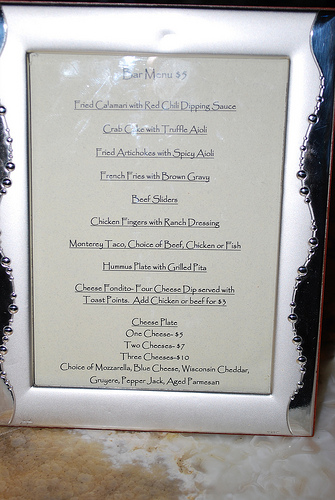 Bar Menu $5
Fried Calamari with Red Chili Dipping Sauce
Crab Cake with Truffle Aioli
Fried Artichokes with Spicy Aioli
French Fries with Brown Gravy
Beef Sliders
Chicken Fingers with Ranch Dressing
Monterey Taco, Choice of Beef, Chicken or Fish
Hummus Plate with Grilled Pita
Cheese Fondito- Four Cheese Dip served with
Toast Points. Add Chicken or beef for $3
Cheese Plate
One Cheese- $5
Two Cheeses- $7
Three Cheeses-$10
Choice of Mozzarella, Blue Cheese, Wisconsin Cheddar,
Gruyere, Pepper Jack, Aged Parmesan